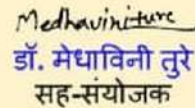 Medhaviniture
डॉ. मेधाविनी तुरे
सह-संयोजक